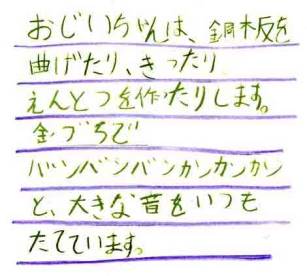 おじいちゃんは、銅板を
曲げたり、きったり
えんとつを作ったりします。
金づちで
バンバンバンカンカンカン
と、大きな音をいつも
たてています。